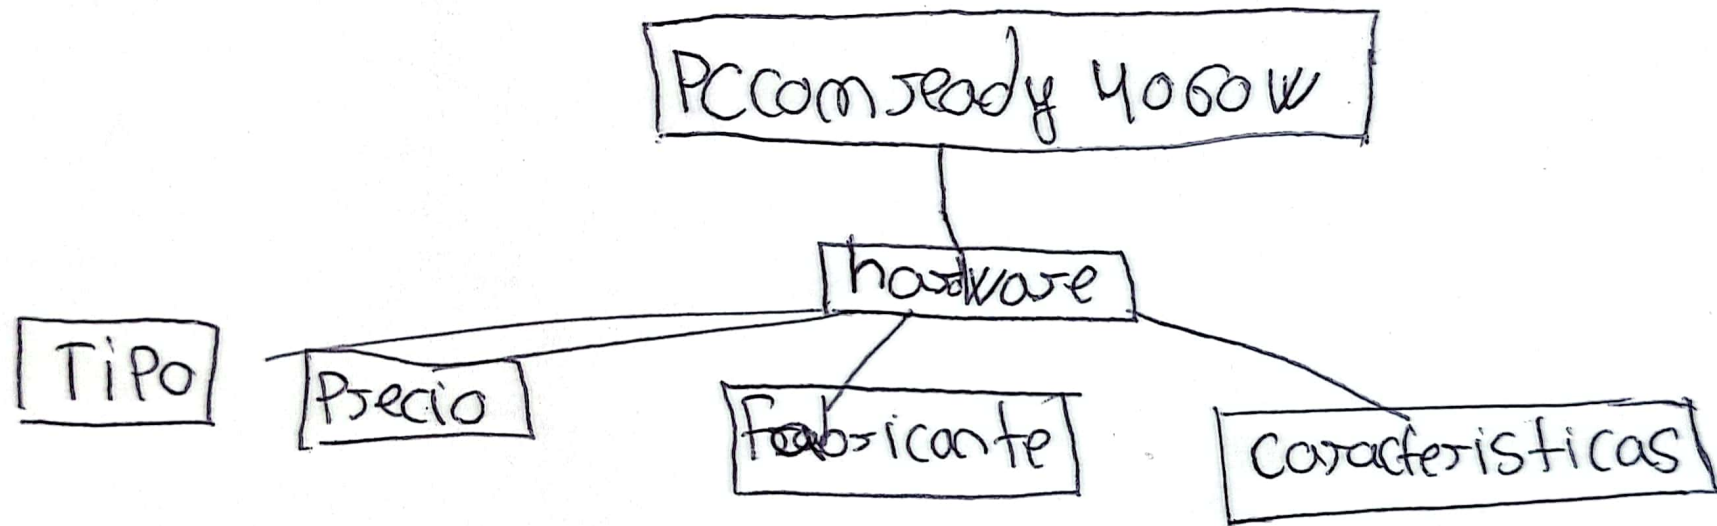 PCcom ready 4060W
hardware
TiPo
Precio
Fabricante
caracteristicas